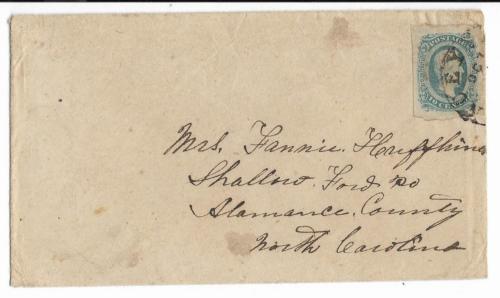 POSTAGE
TEN CENTS
Mrs. Fannie. Huffhines
Shallow. Ford PO
Alamance. County
North Carolina